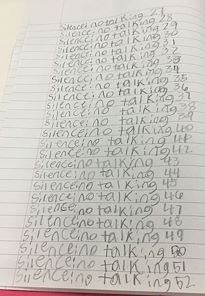 Silence;no talking 27
Silence;no talking 28
Silence;no talking 29
Silence;no talking 30
Silence;no talking 31
Silence;no talking 32
Silence;no talking 33
Silence;no talking 34
Silence;no talking 35
Silence;no talking 36
Silence;no talking 37
Silence;no talking 38
Silence;no talking 39
Silence;no talking 40
Silence;no talking 41
Silence;no talking 42
Silence;no talking 43
Silence;no talking 44
Silence;no talking 45
Silence;no talking 46
Silence;no talking 47
Silence;no talking 48
Silence;no talking 49
Silence;no talking 50
Silence;no talking 51
Silence;no talking 52